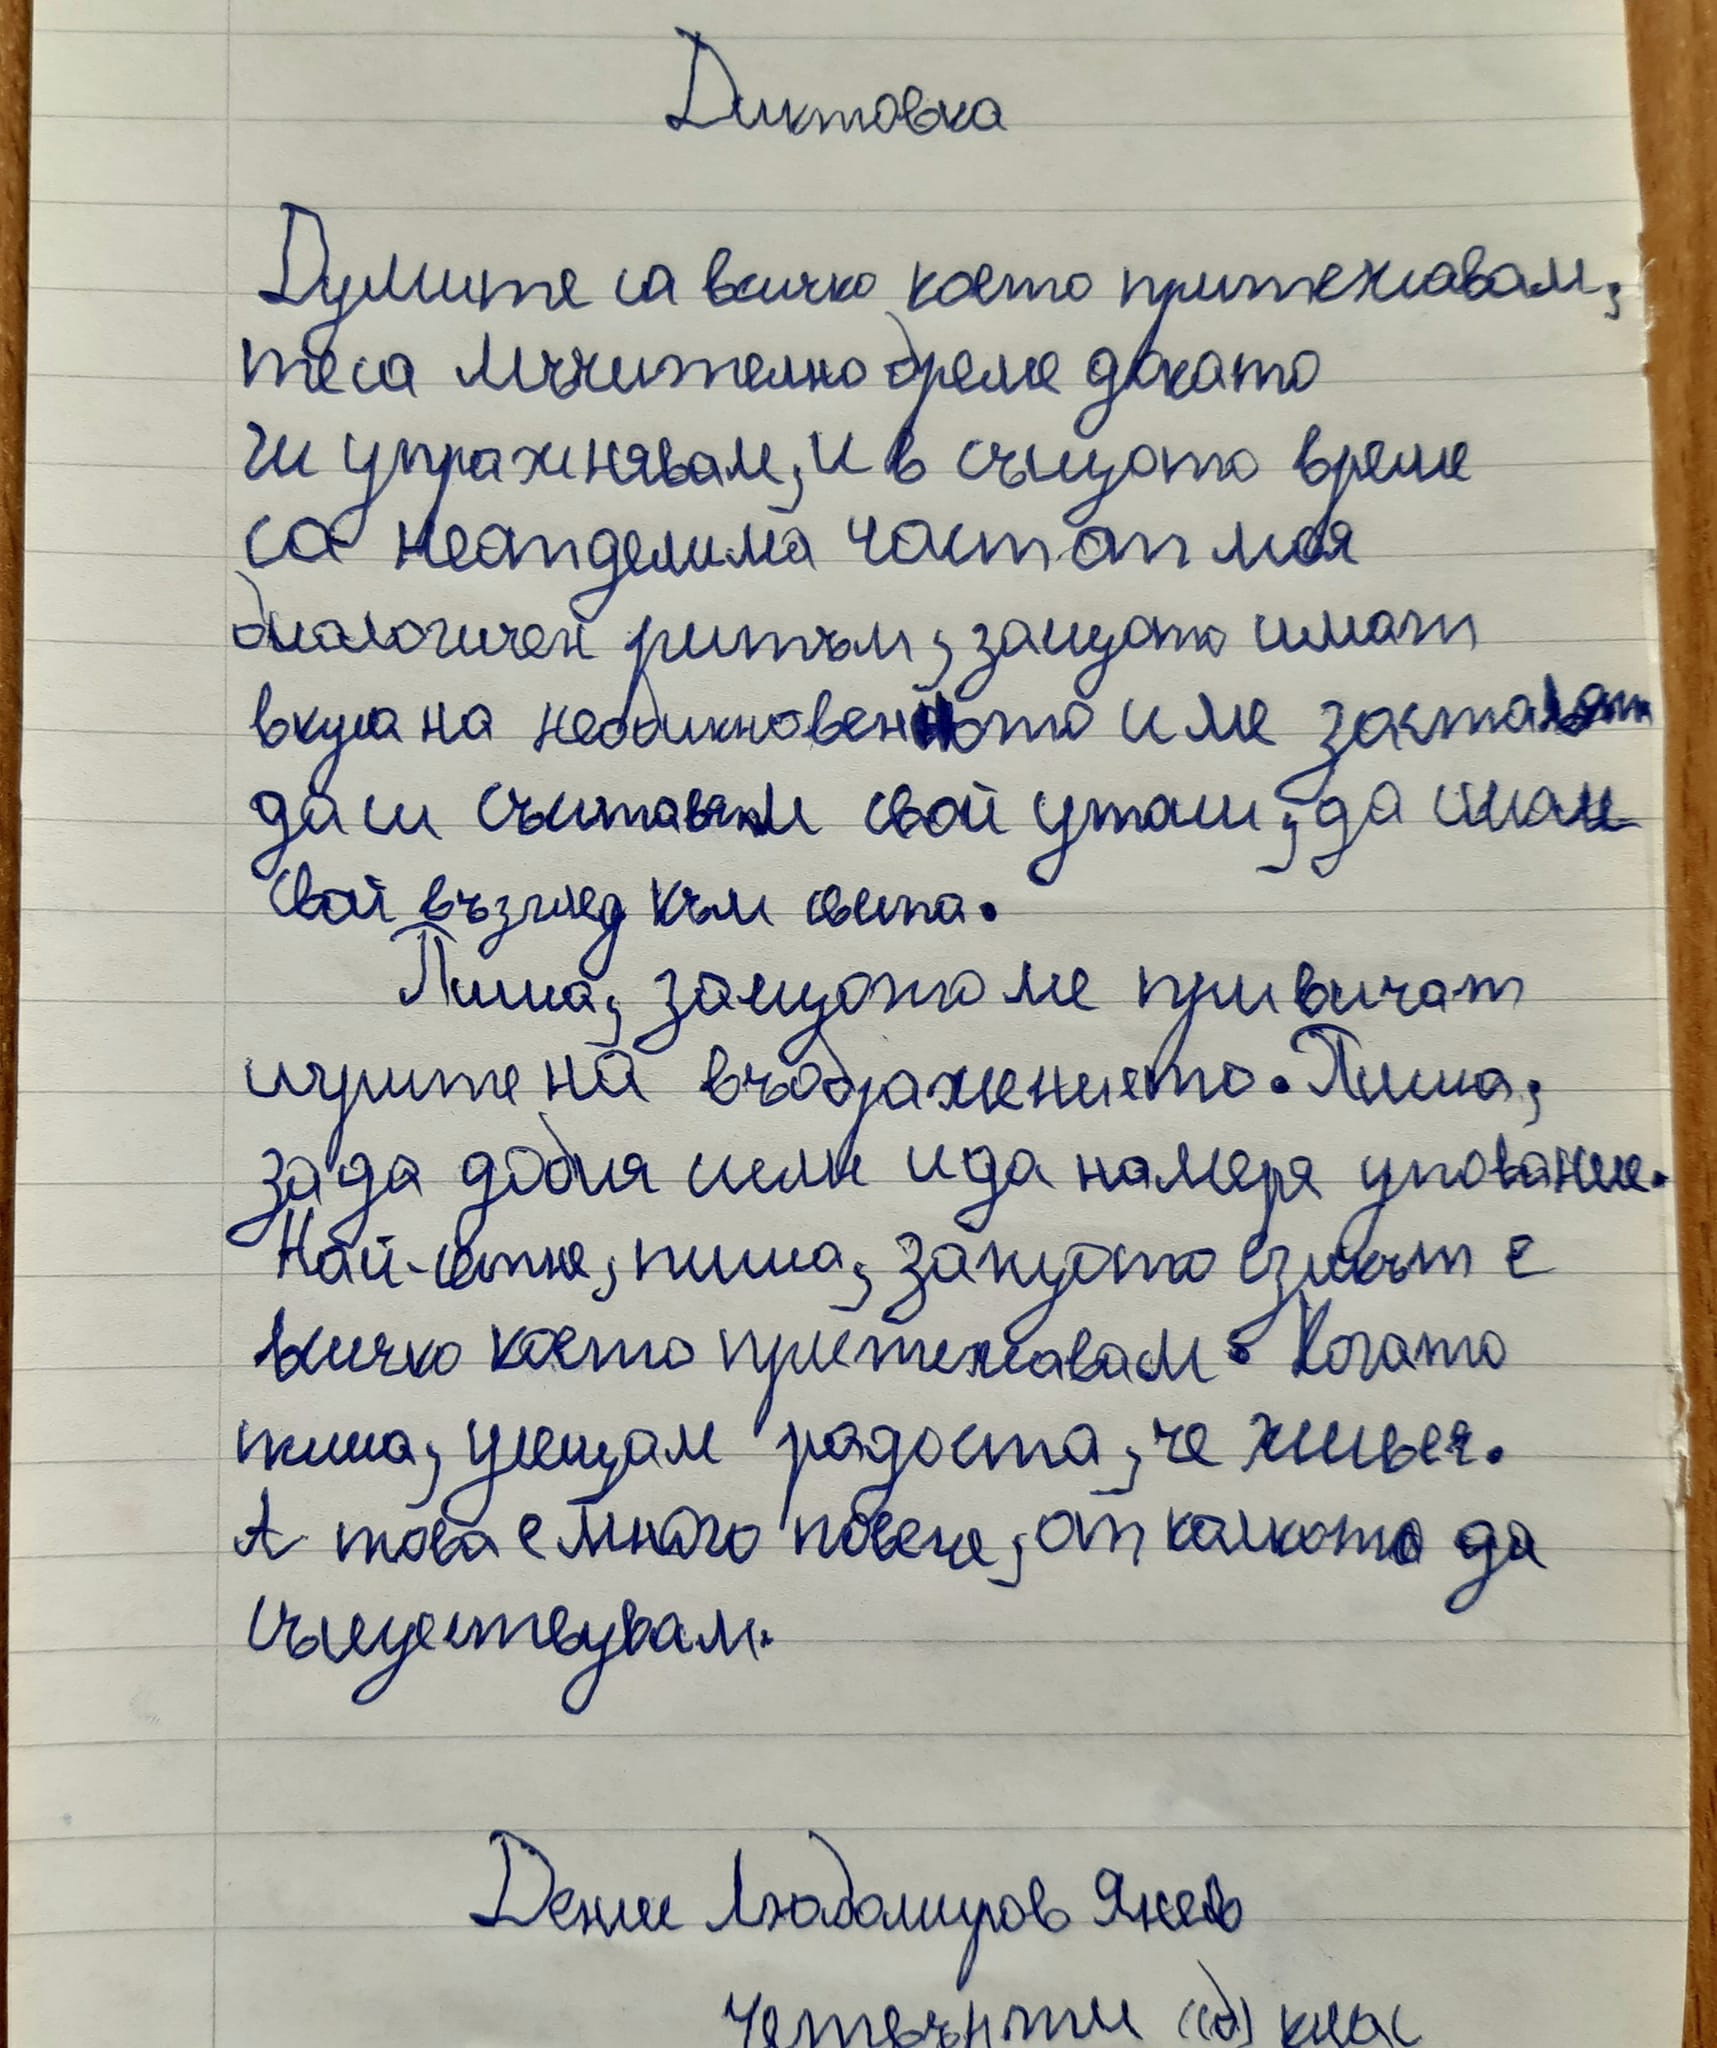 Диктовка
Думите са всичко което притежавам,
те са мъчително бреме докато
ги упражнявам, и в същото време
са неотделима част от моя
биологичен ритъм, защото имат
вкуса на необикновеното и ме заставят
да си съставям свой утаи, да имам
свой възглед към света.
Пиша, защото ме привичат
игрите на въображението. Пиша,
за да добия сили и да намеря упование.
Най-сетне, пиша, защото езикът е
всичко което притежавам. Когато
пиша, усещам радоста, че живея.
А това е много повече, от колкото да
съществувам.
Дение Любомиров Янев
Четвърти "б" клас